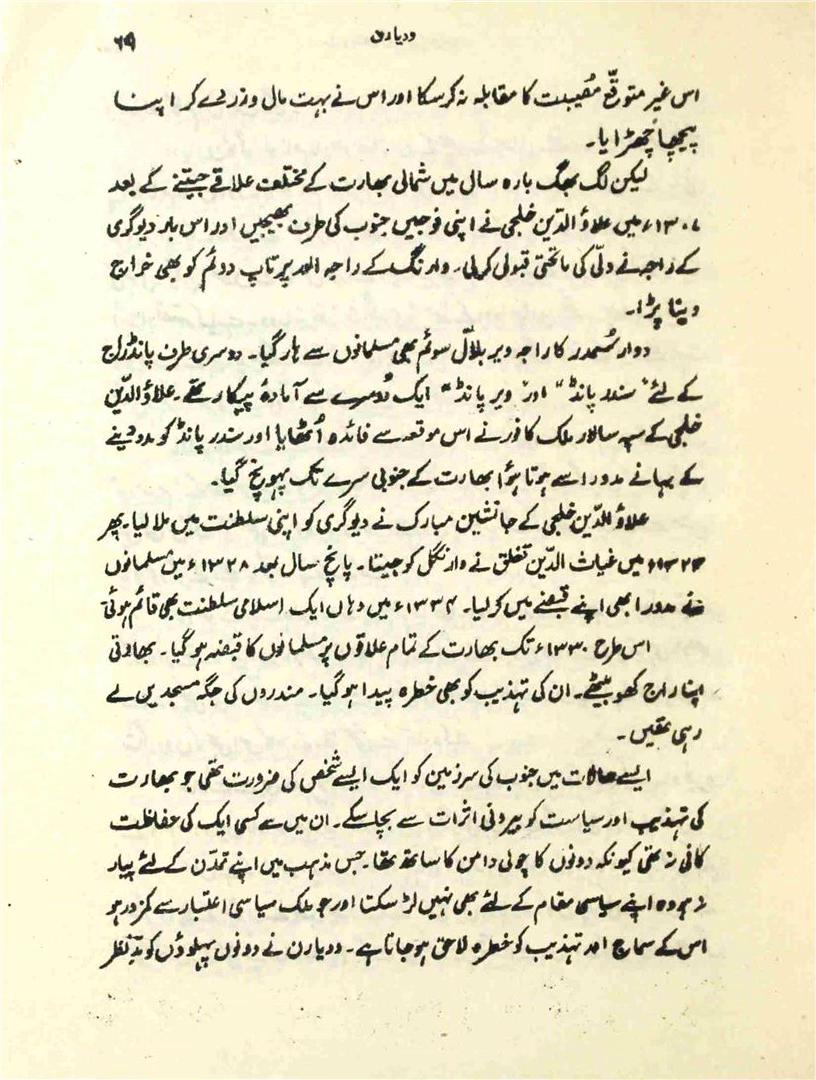 ودیارن
۶۹
اس غیر متوقّع مُصیبت کا مقابلہ نہ کر سکا اور اس نے بہت مال و زر دے کر اپنا
پیچھا چھڑایا۔
لیکن لگ بھگ بارہ سال میں شمالی بھارت کے مختلف علاقے جیتنے کے بعد
۱۳۰۷ء میں علاؤ الدّین خلجی نے اپنی فوجیں جنوب کی طرف بھیجیں اور اس بار دیوگری
کے راجہ نے دلّی کی ماتحتی قبول کر لی۔ وارنگ کے راجہ الدر پرتاپ دوئم کو بھی خراج
دینا پڑا۔
دوار سُمدر کا راجہ ویر بلاّل سوئم بھی مسلمانوں سے ہار گیا۔ دوسری طرف پانڈ راج
کے لئے "سندر پانڈ" اور "ویر پانڈ" ایک دُوسرے سے آمادۂ پیکار تھے۔ علاؤ الدّین
خلجی کے سپہ سالار ملک کافور نے اس موقعہ سے فائدہ اُٹھایا اور سندر پانڈ کو مدد دینے
کے بہانے مدورا سے ہوتا ہؤا بھارت کے جنوبی سرے تک پہونچ گیا۔
علاؤ الدّین خلجی کے جانشین مبارک نے دیوگری کو اپنی سلطنت میں ملا لیا۔ پھر
۱۳۲۳ء میں غیاث الدّین تغلق نے وارنگل کو جیتا۔ پانچ سال بعد ۱۳۲۸ء میں مسلمانوں
نے مدورا بھی اپنے قبضے میں کر لیا۔ ۱۳۳۴ء میں وہاں ایک اسلامی سلطنت بھی قائم ہوئی
اس طرح ۱۳۳۰ء تک بھارت کے تمام علاقوں پر مسلمانوں کا قبضہ ہو گیا۔ بھارتی
اپنا راج کھو بیٹھے۔ ان کی تہذیب کو بھی خطرہ پیدا ہو گیا۔ مندروں کی جگہ مسجدیں لے
رہی تھیں۔
ایسے حالات میں جنوب کی سرزمین کو ایک ایسے شخص کی ضرورت تھی جو بھارت
کی تہذیب اور سیاست کو بیرونی اثرات سے بچا سکے۔ ان میں سے کسی ایک کی حفاظت
کافی نہ تھی کیونکہ دونوں کا چولی دامن کا ساتھ تھا۔ جس مذہب میں اپنے تمدّن کے لئے پیار
نہ ہو وہ اپنے سیاسی مقام کے لئے بھی نہیں لڑ سکتا اور جو ملک سیاسی اعتبار سے کمزور ہو
اس کے سماج اور تہذیب کو خطرہ لاحق ہو جاتا ہے۔ ودیارن نے دونوں پہلوؤں کو مدّنظر